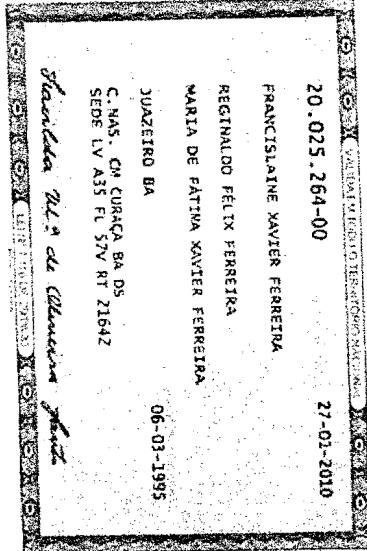 VÁLIDA EM TODO O TERRITÓRIO NACIONAL
20.025.264-00 27-01-2010
FRANCISLAINE XAVIER FERREIRA
REGINALDO FÉLIX FERREIRA
MARIA DE FÁTIMA XAVIER FERREIRA
JUAZEIRO BA 06-03-1995
C.NAS. CM CURAÇA BA DS
SEDE LV A35 FL 57V RT 21642
de Oliveira